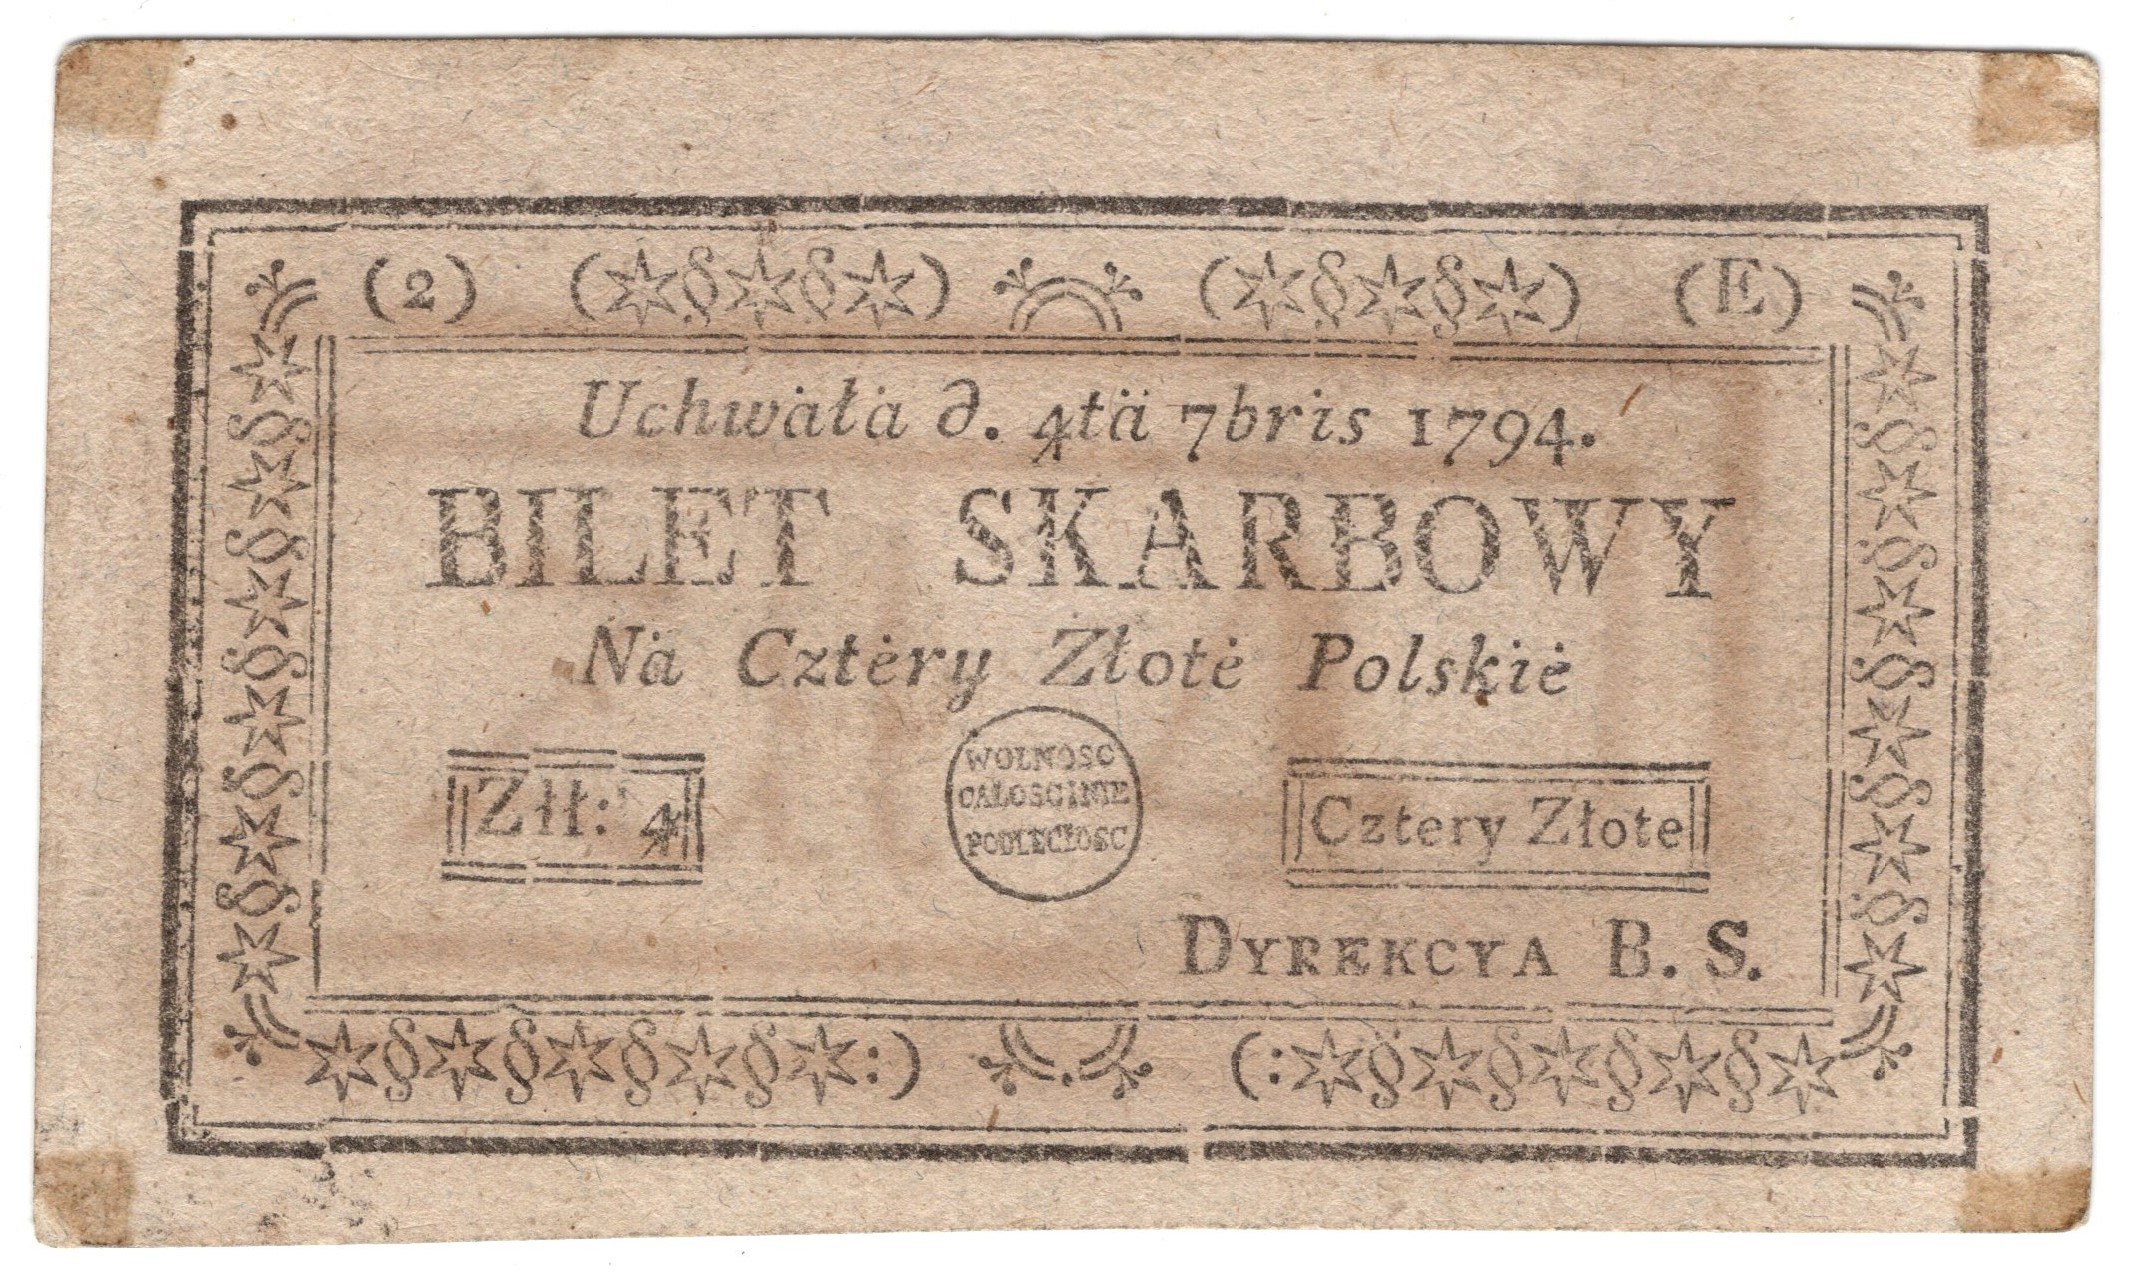 (2) (E)
Uchwȧłȧ d. 4tä 7bris 1794.
BILET SKARBOWY
Nȧ Cztėry Złotė Polskiė
Złł: 4
WOLNOSC
CAŁOSCINIE
PODLEGŁOSC
Cztery Złote
DYREKCYA B. S.